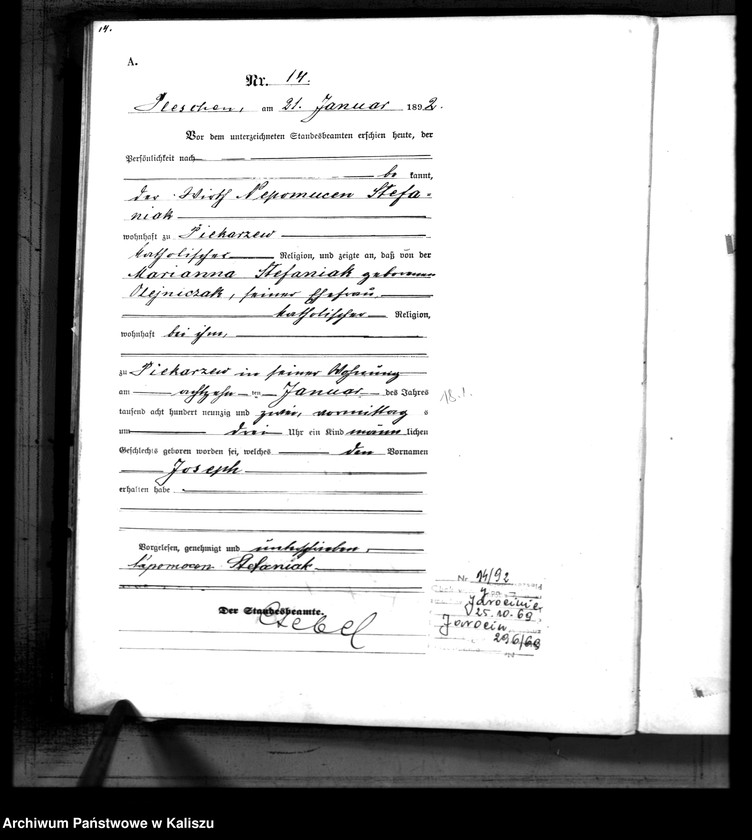 14.
A.
Nr. 14.
Pleschen, am 21. Januar 1892.
Vor dem unterzeichneten Standesbeamten erschien heute, der
Persönlichkeit nach
be kannt,
der Wirth Nepomucen Stefa-
niak
wohnhaft zu Piekarzew
katholischer Religion, und zeigte an, daß von der
Marianna Stefaniak geborenen
Olejniczak, seiner Ehefrau
katholischer Religion,
wohnhaft bei ihm,
zu Piekarzew in seiner Wohnung
am achtzehn ten Januar des Jahres
tausend acht hundert neunzig und zwei, vormittag s
um drei Uhr ein Kind männ lichen
Geschlechts geboren worden sei, welches den Vornamen
Joseph
erhalten habe
18.1.
Vorgelesen, genehmigt und unterschrieben.
Stefaniak
Der Standesbeamte.
Nr 14/92
Jarocinie
25.10.69
Jarocin
296/69
Archiwum Państwowe w Kaliszu